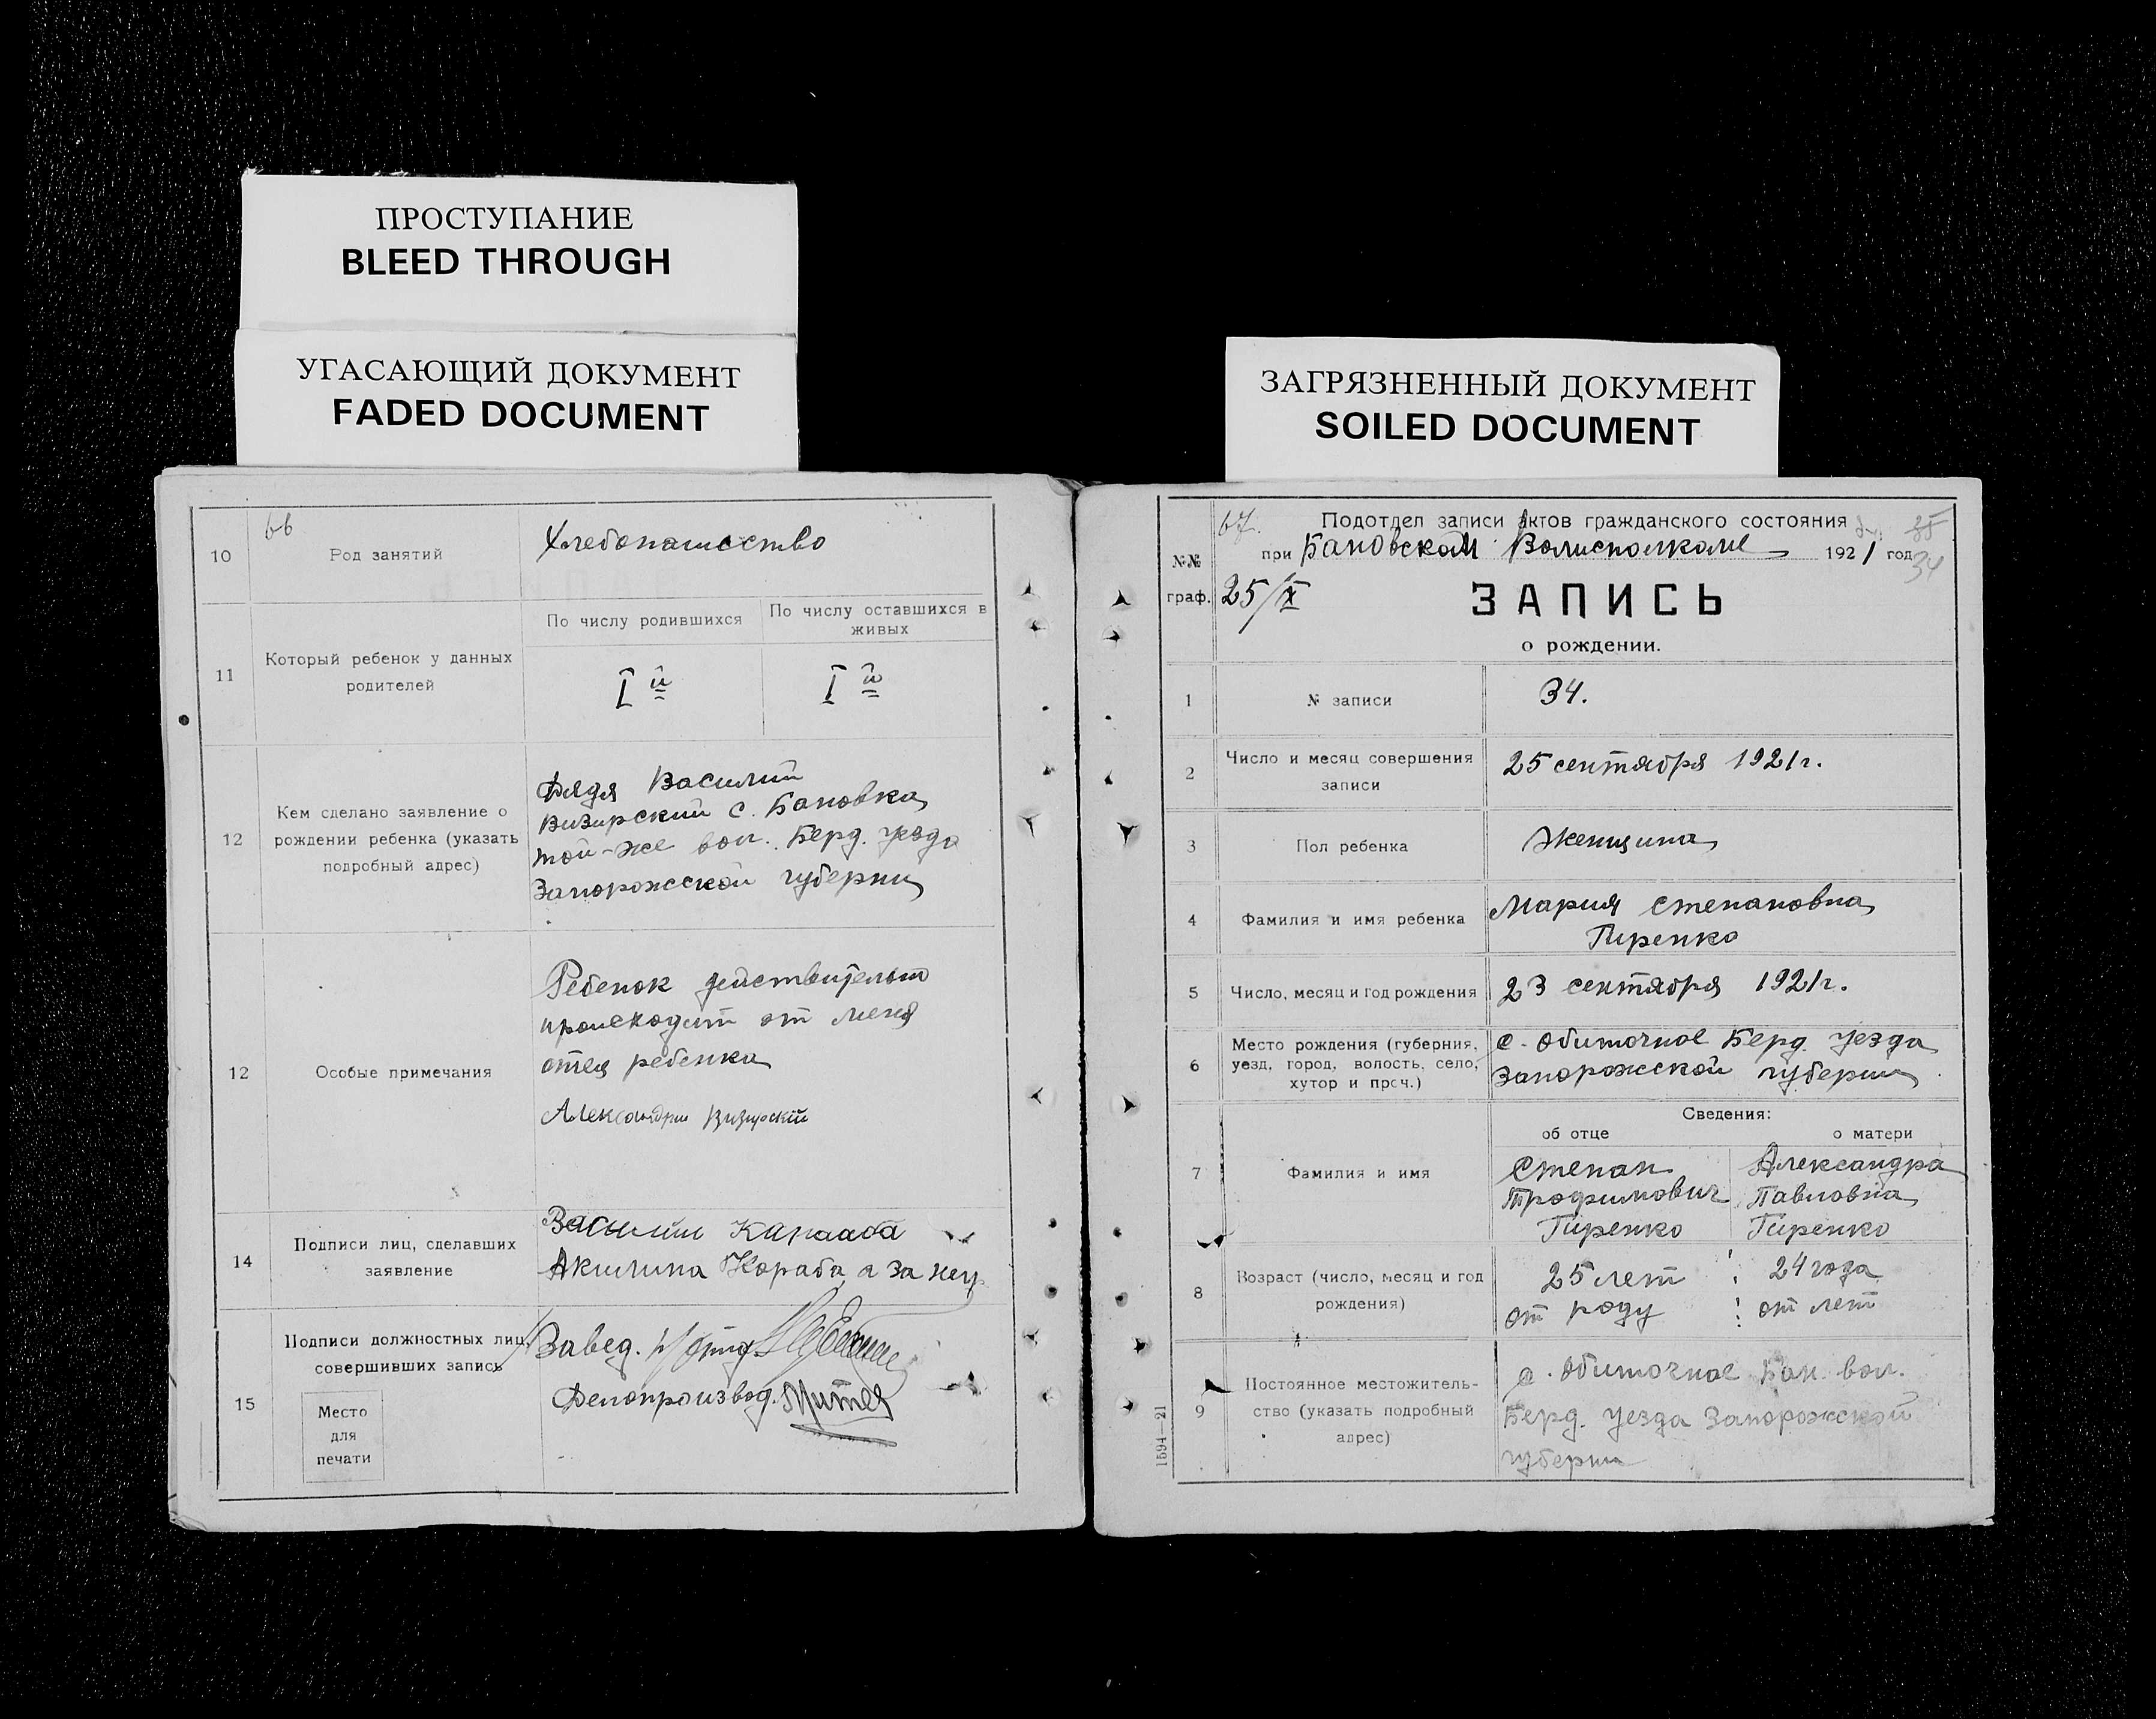 ПРОСТУПАНИЕ
BLEED THROUGH
УГАСАЮЩИЙ ДОКУМЕНТ
FADED DOCUMENT
66
10
Род занятий
Хлебопашество
11
Который ребенок у данных
родителей
По числу родившихся
По числу оставшихся в
живых
I й
I й
12
Кем сделано заявление о
рождении ребенка (указать
подробный адрес)
Дядя Василий
Визирский с. Бановка
той-же вол. Берд. уезда
Запорожсской губерни
12
Особые примечания
Ребенок действительно
происходит от меня
отец ребенка
Александри Визирскій
14
Подписи лиц, сделавших
заявление
Василий
Акилина Кораба а за неу
15
Подписи должностных лиц,
совершивших запись
Место
для
печати
Завед.
Делопроизвод.
ЗАГРЯЗНЕННЫЙ ДОКУМЕНТ
SOILED DOCUMENT
67.
35
34
№№
граф.
Подотдел записи актов гражданского состояния
при Бановском Волисполкоме 1921 год
25/IX
ЗАПИСЬ
о рождении.
1
№ записи
34.
2
Число и месяц совершения
записи
25 сентября 1921г.
3
Пол ребенка
Женщина
4
Фамилия и имя ребенка
Мария Степановна
Гиренко
5
Число, месяц и год рождения
23 сентября 1921г.
6
Место рождения (губерния,
уезд, город, волость, село,
хутор и проч.)
с. Обиточное Берд. уезда
Запорожсской губерни
Сведения:
об отце
о матери
7
Фамилия и имя
Степан
Трофимович
Гиренко
Александра
Павловна
Гиренко
8
Возраст (число, месяц и год
рождения)
25 лет
от роду
24 года
от лет
9
Постоянное местожитель-
ство (указать подробный
адрес)
с. Обиточное Бан. вол.
Берд. уезда Запорожсской
губерни
1594—21